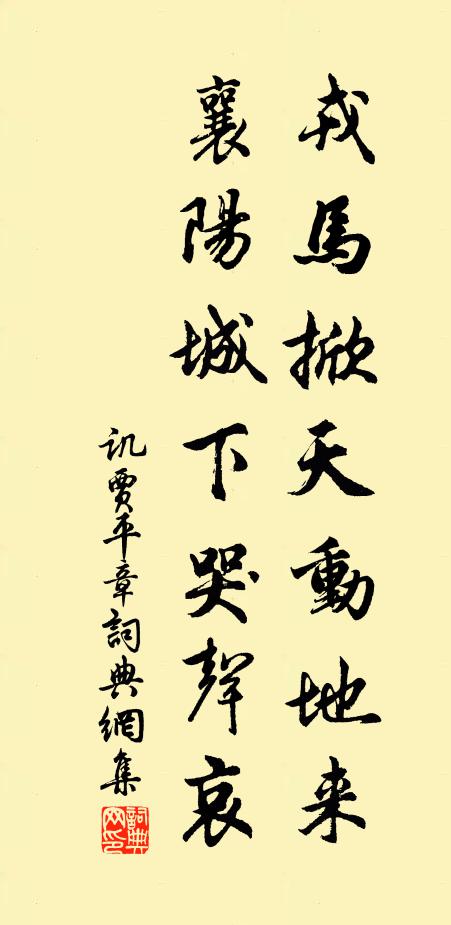 戎馬掀天動地来
襄陽城下哭聲哀
讥賈平章詞典網集
詞典网印